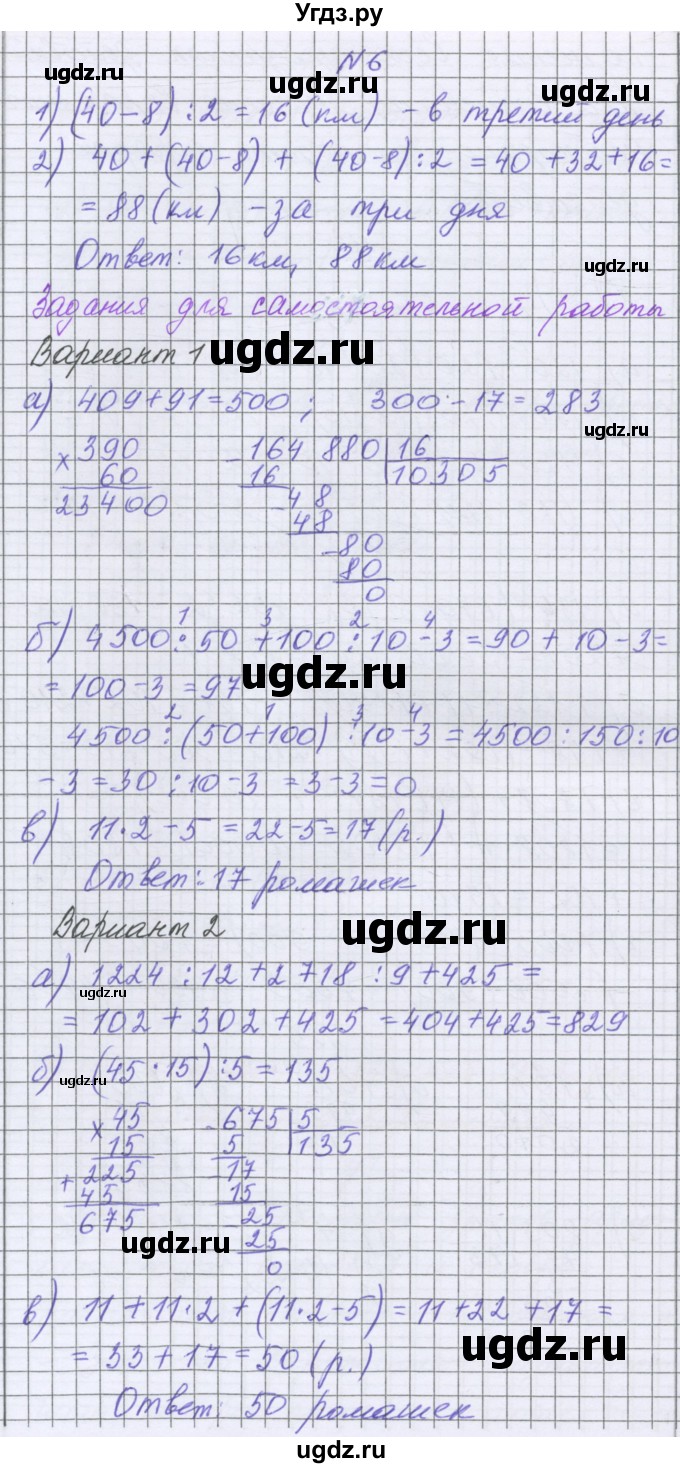 Угдз.ру
N 6
1) (40-8) : 2 = 16 (км) - в третий день
2) 40 + (40-8) + (40-8) : 2 = 40 + 32 + 16 =
= 88 (км) - за три дня
Ответ: 16 км, 88 км
Задания для самостоятельной работы
Вариант 1
а) 409 + 91 = 500 ; 300 - 17 = 283
× 390 - 164 880 | 16
60 16 10305
23400 - 48
48
- 80
80
0
б) 4500 : 50 + 100 : 10 - 3 = 90 + 10 - 3 =
1 3 2 4
= 100 - 3 = 97
4500 : (50 + 100) : 10 - 3 = 4500 : 150 : 10
2 1 3 4
- 3 = 30 : 10 - 3 = 3 - 3 = 0
в) 11 · 2 - 5 = 22 - 5 = 17 (р.)
Ответ: 17 ромашек
Вариант 2
а) 1224 : 12 + 2718 : 9 + 425 =
= 102 + 302 + 425 = 404 + 425 = 829
б) (45 · 15) : 5 = 135
× 45 - 675 | 5
15 5 135
+ 225 - 17
45 15
675 - 25
25
0
в) 11 + 11 · 2 + (11 · 2 - 5) = 11 + 22 + 17 =
= 33 + 17 = 50 (р.)
Ответ: 50 ромашек
ugdz.ru
ugdz.ru
ugdz.ru
ugdz.ru
ugdz.ru
ugdz.ru
ugdz.ru
ugdz.ru
ugdz.ru
ugdz.ru
ugdz.ru
ugdz.ru
ugdz.ru